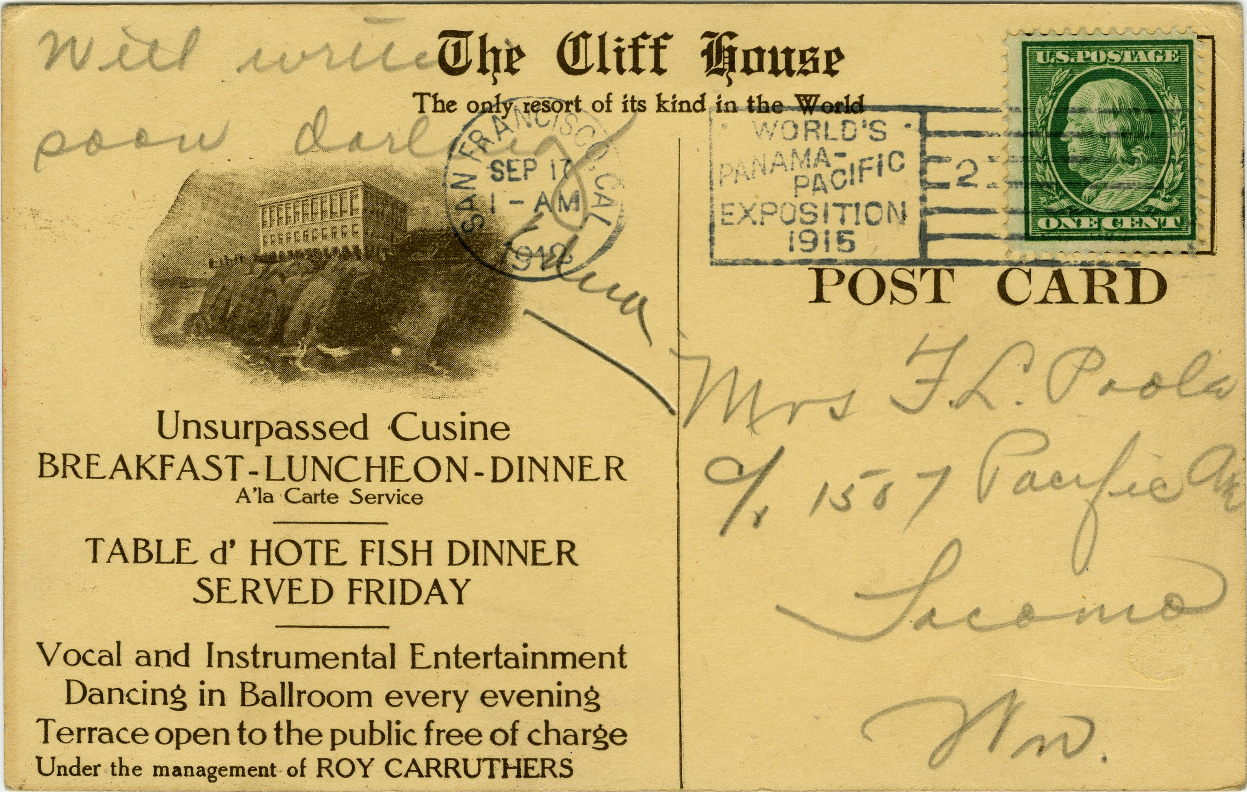 Will write
soon darling
The Cliff House
The only resort of its kind in the World
SAN FRANCISCO, CAL.
SEP 17
1 - AM
WORLD'S
PANAMA-
PACIFIC
EXPOSITION
1915
2
U.S. POSTAGE
ONE CENT
POST CARD
Unsurpassed Cusine
BREAKFAST-LUNCHEON-DINNER
A'la Carte Service
TABLE d' HOTE FISH DINNER
SERVED FRIDAY
Vocal and Instrumental Entertainment
Dancing in Ballroom every evening
Terrace open to the public free of charge
Under the management of ROY CARRUTHERS
Mrs F. L. Poole
c/o 1507 Pacific Ave
Tacoma
Wn.